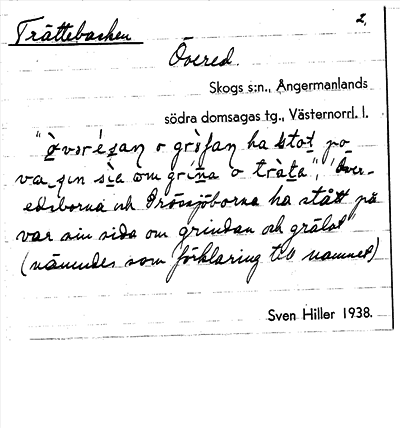 Trättebacken 2.
Övered.
Skogs s:n., Ångermanlands
södra domsagas tg., Västernorrl. l.
"òvərésan o grö̀fan ha stot po
va sin sìa om grìna o tràta", "Över-
edsborna och Grössjöborna ha stått på
var sin sida om grindan och grälat"
(nämndes som förklaring till namnet)
Sven Hiller 1938.